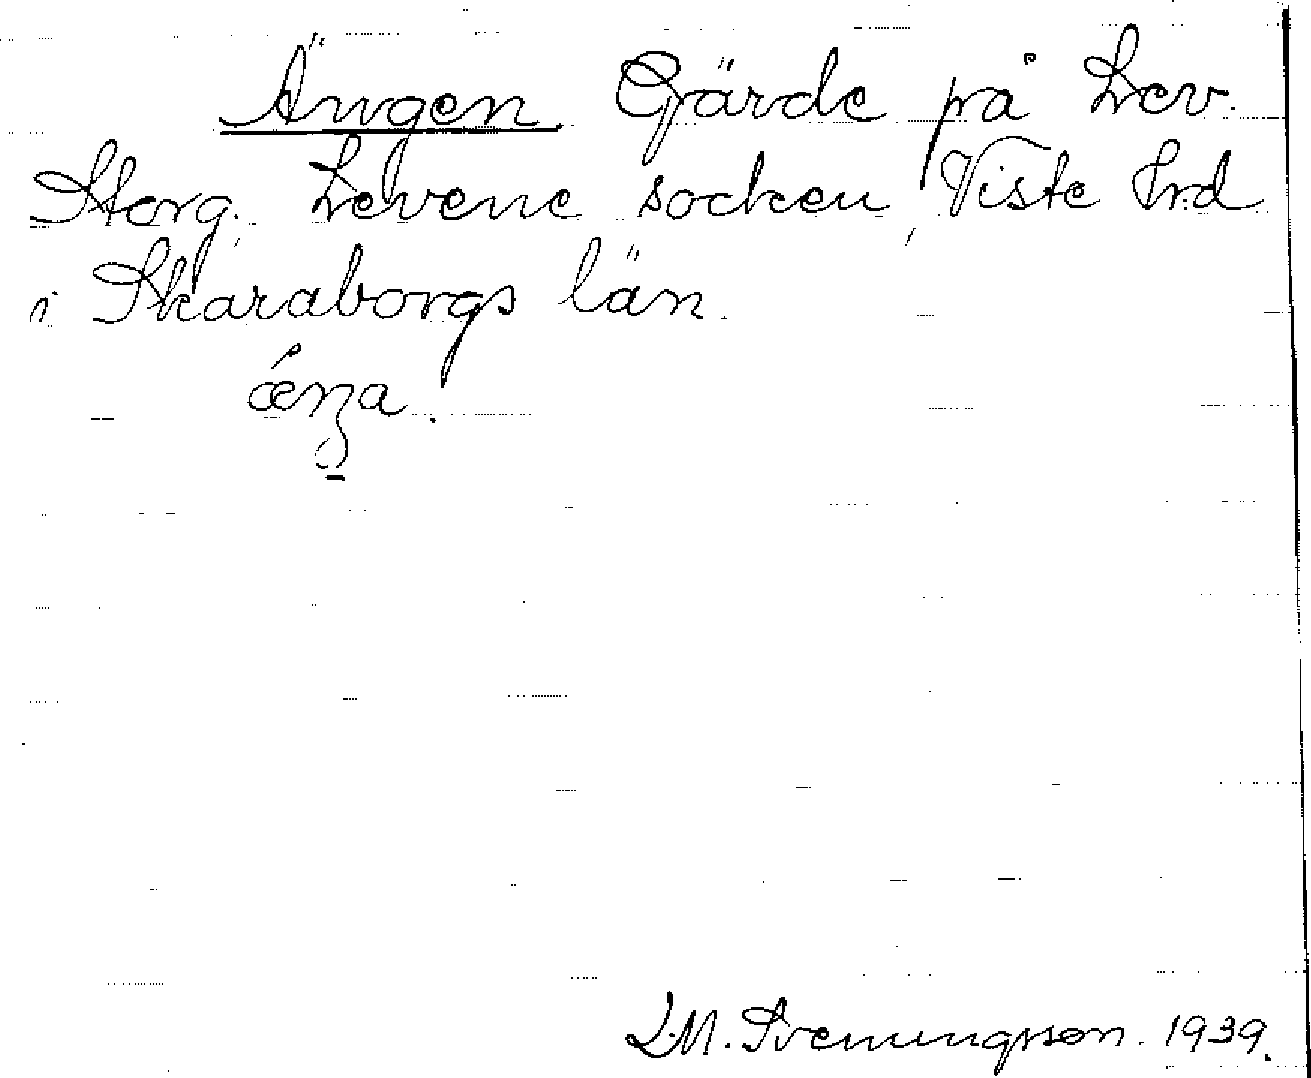 Ängen Gärde på Lev.
Storg. Levene socken, Viste hrd
i Skaraborgs län.
ǽŋa.
L.M. Svenungsson. 1939.